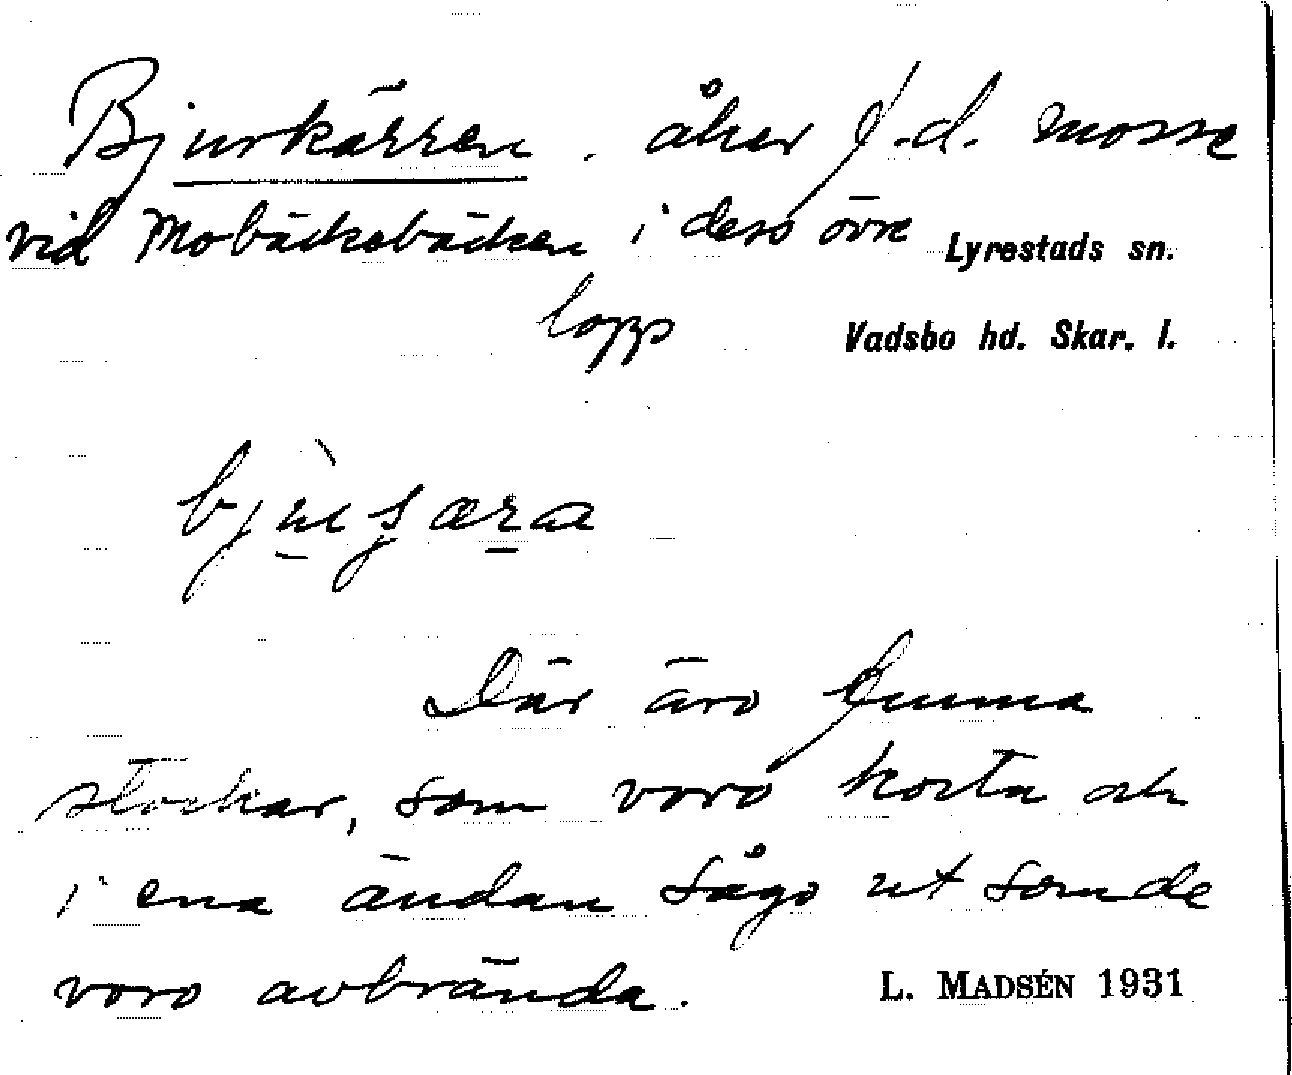 Bjurkärren. åker f.d. mosse
vid Mobäckebäcken i dess övre
lopp
Lyrestads sn.
Vadsbo hd. Skar. l.
Där äro funna
stockar, som voro korta och
i ena ändan sågo ut som de
voro avbrända.
L. MADSÉN 1931